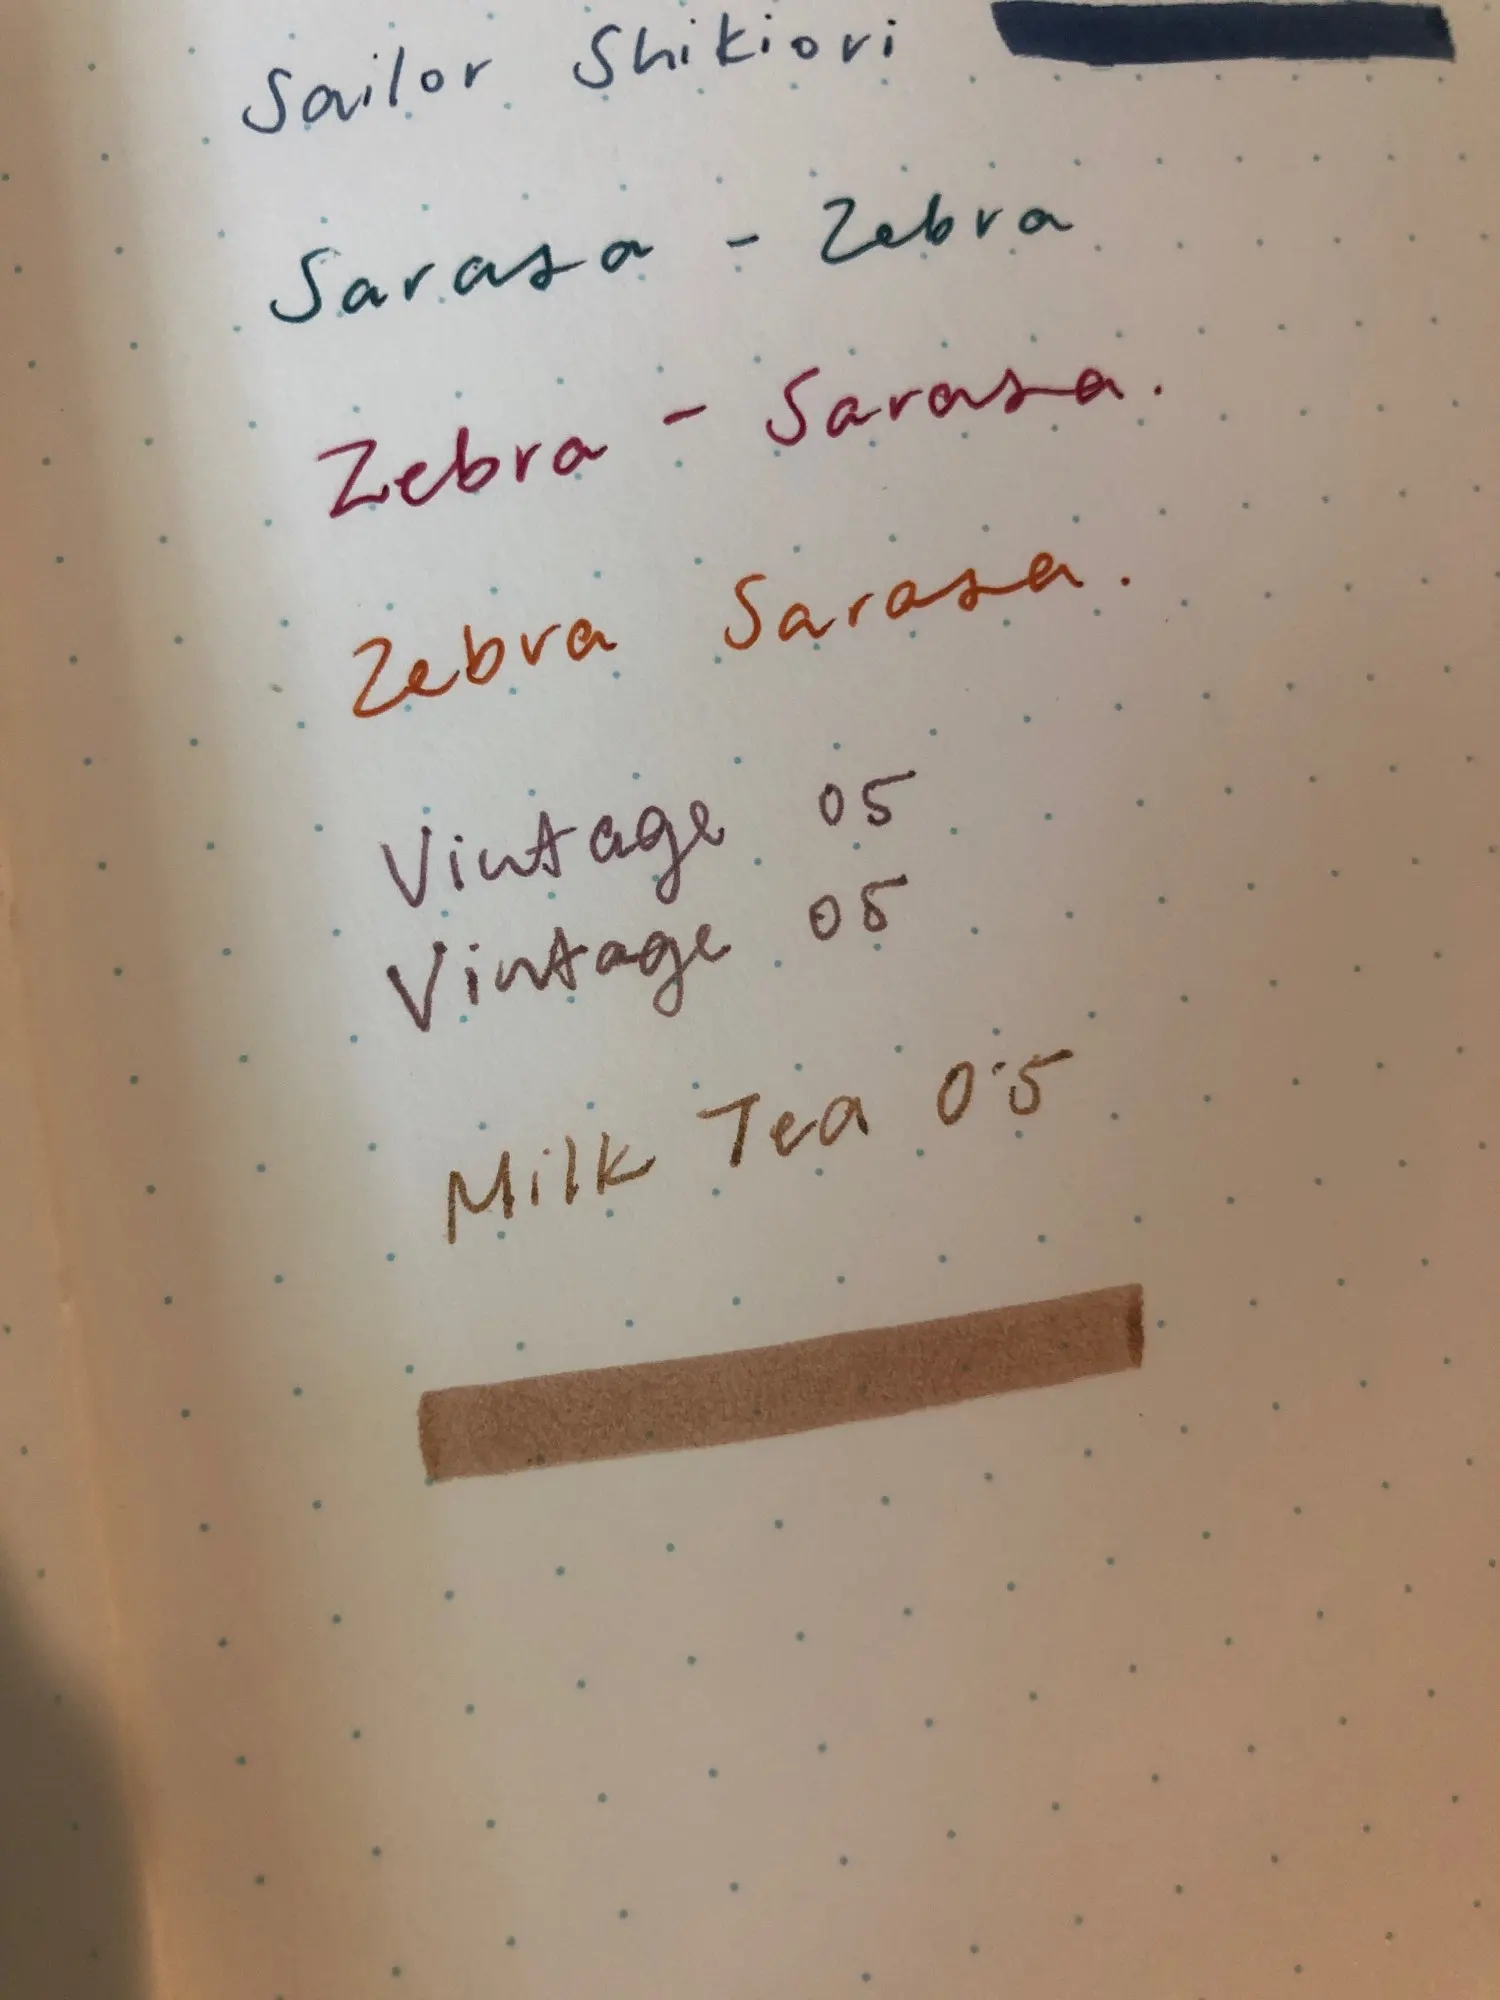 Sailor Shikiori
Sarasa - Zebra
Zebra - Sarasa.
Zebra Sarasa.
Vintage 05
Vintage 05
Milk Tea 0.5